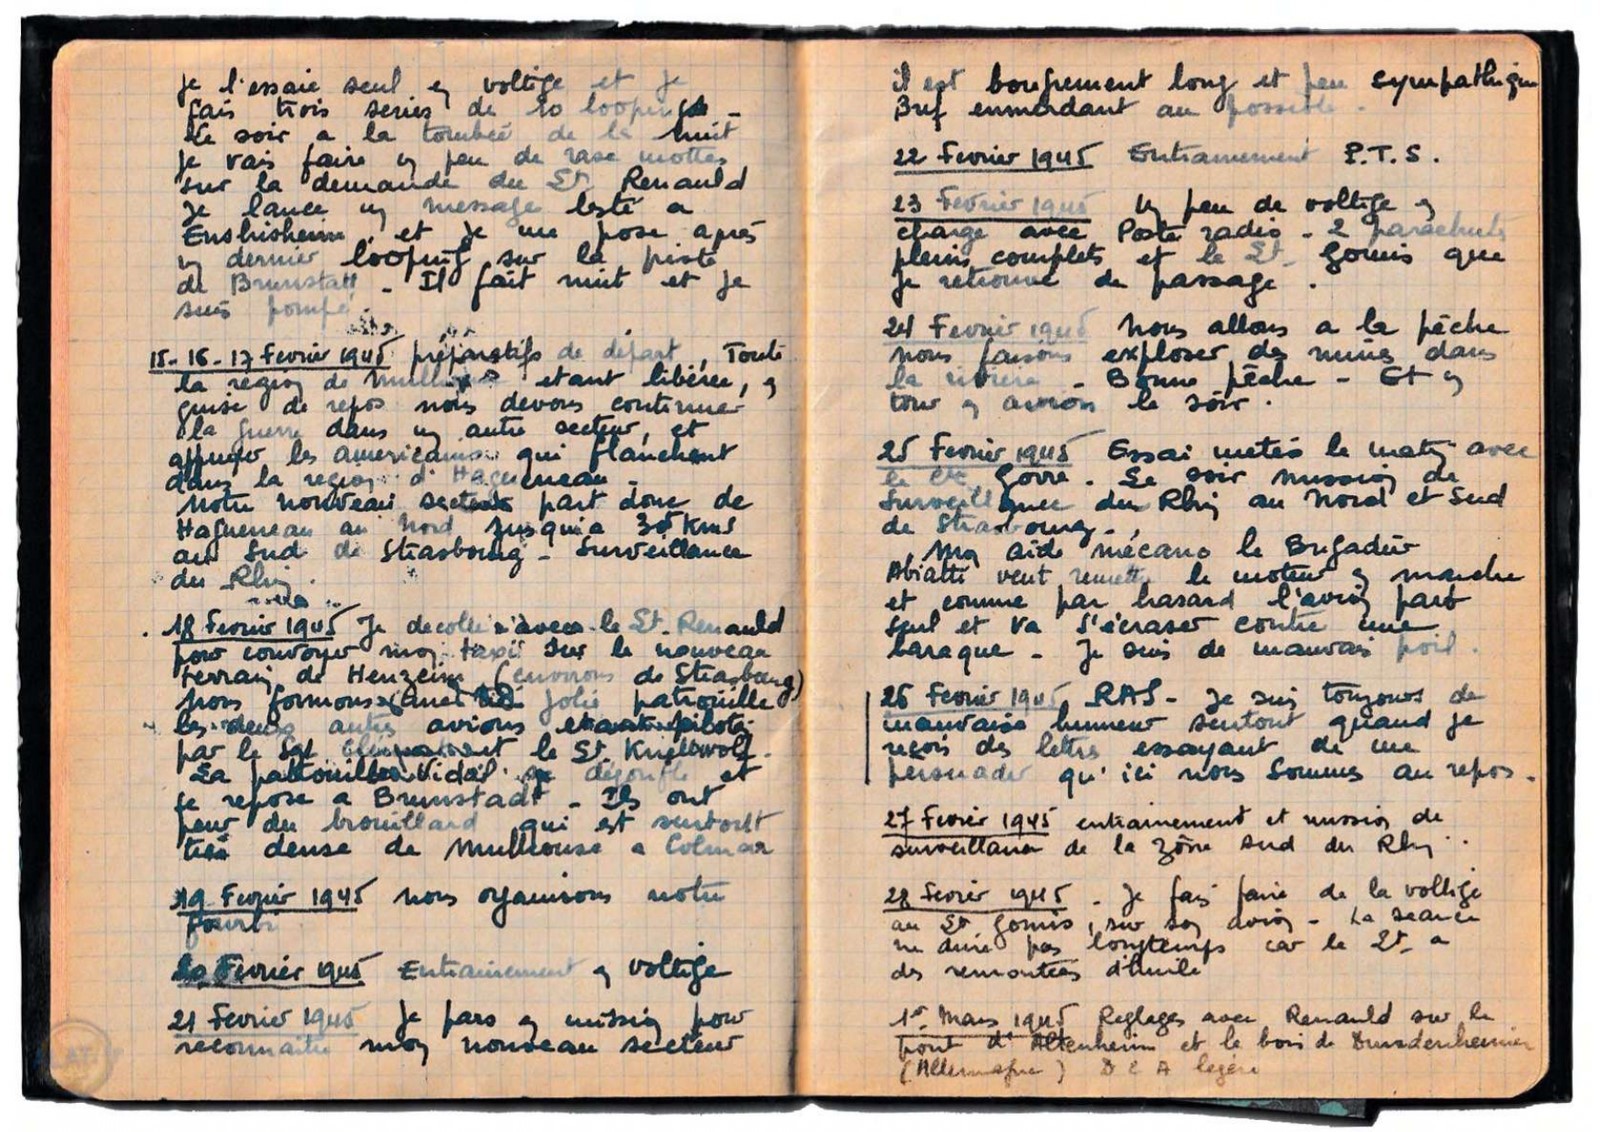 je l'essaie seul en voltige et je
fais trois series de 10 loopings -
Le soir a la tombeé de la nuit
je vais faire un peu de rase mottes
sur la demande du Lt. Renauld
Je lance un message lesté a
Enshisheim, et je me pose après
un dernier looping sur la piste
de Brunstatt - Il fait nuit et je
suis pompé
15-16-17 Fevrier 1945 préparatifs de départ, Toute
la region de etant libérée, en
guise de repos nous devons continuer
la guerre dans un autre secteur, et
appuyer les americains qui flanchent
dans la region d'Hagueneau -
Notre nouveau secteur part donc de
Hagueneau au Nord jusqu'a 30 Kms
au Sud de Strasbourg - Surveillance
du Rhin.
18 Fevrier 1945 Je decolle avec le Lt. Renauld
pour convoyer mon taxi sur le nouveau
terrain de Henzeim (environs de Strasbourg)
Nous formons une jolie patrouille
les deux autres avions etant pilotés
par le Sgt et le Lt. Knellwolf -
La patrouille Vidal se dégonfle et
se repose a Brunstadt - Ils ont
peur du brouillard qui est surtout
très dense de Mulhouse a Colmar
19 Fevrier 1945 nous organisons notre
fourbi
20 Fevrier 1945 Entrainement en voltige
21 Fevrier 1945 Je pars en mission pour
reconnaitre mon nouveau secteur
il est bougrement long et peu sympathique
Bref emmerdant au possible -
22 Fevrier 1945 Entrainement P.T.S.
23 Fevrier 1945 Un peu de voltige en
charge avec Poste radio - 2 parachutes
pleins complets et le Lt. Gomis que
je retrouve de passage.
24 Fevrier 1945 Nous allons a la pêche
nous faisons exploser des mines dans
la rivière - Bonne pêche - Et un
tour en avion le soir.
25 Fevrier 1945 Essai meteo le matin avec
le Gorre. Le soir mission de
Surveillance du Rhin au Nord et Sud
de Strasbourg -
Mon aide mécano le Brigadier
Abiatte veut remettre le moteur en marche
et comme par hasard l'avion part
seul et va s'écraser contre une
baraque - Je suis de mauvais poil.
26 Fevrier 1945 RAS - Je suis toujours de
mauvaise humeur surtout quand je
reçois des lettres essayant de me
persuader qu'ici nous sommes au repos -
27 Fevrier 1945 entrainement et mission de
surveillance de la zône sud du Rhin.
28 Fevrier 1945 - Je fais faire de la voltige
au Lt Gomis, sur son avion - La seance
ne dure pas longtemps car le Lt. a
des remontées d'huile
1er Mars 1945 Reglages avec Renauld sur le
pont d'Altenheim et le bois de
(Allemagne) D C A légère